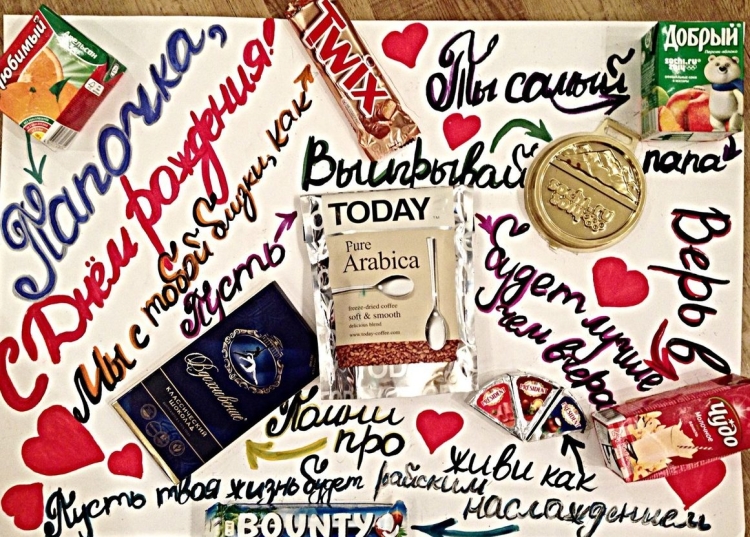 Любимый
Апельсин
Папочка,
С Днём рождения!
Мы с тобой близки, как
TWIX
Ты самый
Добрый
sochi.ru
папа
Выигрывай
Пусть
TODAY
Pure
Arabica
freeze-dried coffee
soft & smooth
delicious blend
www.today-coffee.com
будет лучше
чем вчера
Верь в
Чудо
Молочное
Вдохновение
КЛАССИЧЕСКИЙ
ШОКОЛАД
Помни
про
живи как
наслаждением
Пусть твоя жизнь будет райским
BOUNTY